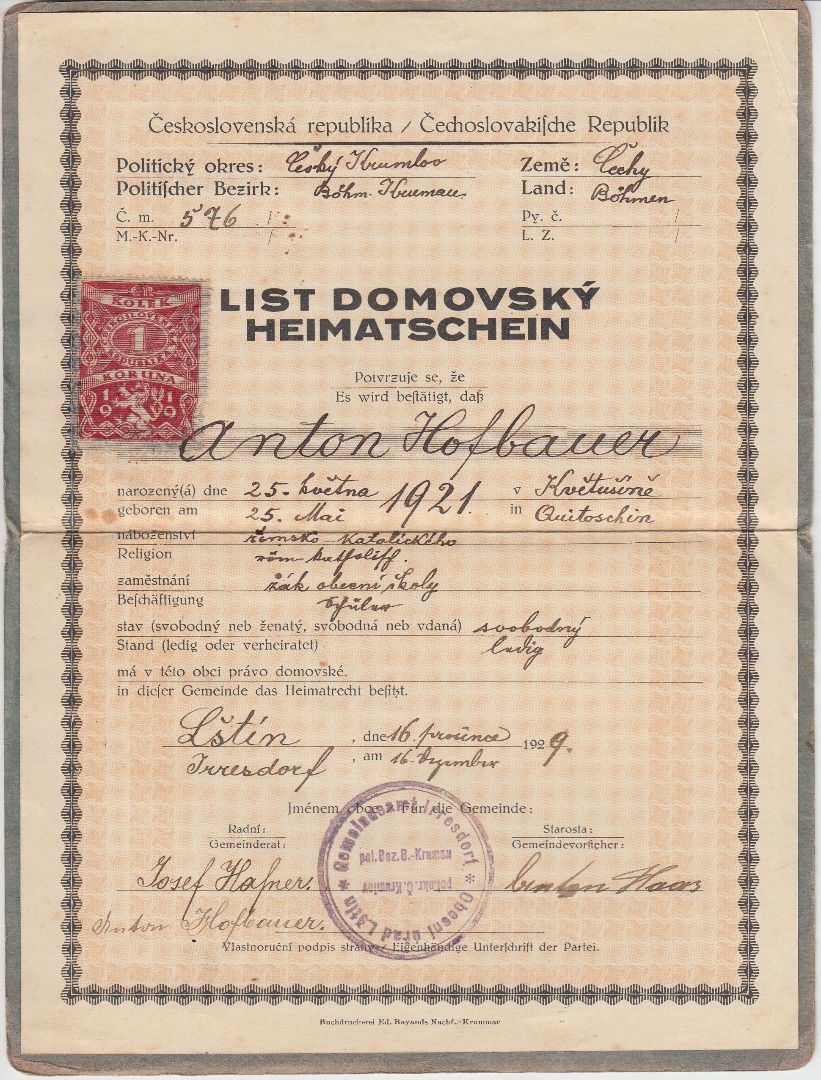 Československá republika / Čechoslovakiſche Republik
Politický okres: Český Krumlov Země: Čechy
Politiſcher Bezirk: Böhm. Krumau Land: Böhmen
Č. m. 576 /: Py. č. /
M.-K.-Nr. / L. Z. /
KOLEK
ČESKOSLOVENSKÁ
1
REPUBLIKA
KORUNA
1919
LIST DOMOVSKÝ
HEIMATSCHEIN
Potvrzuje se, že
Es wird beſtätigt, daß
Anton Hofbauer
narozený(á) dne 25. května 1921. v Květušíně
geboren am 25. Mai in Quitoschin
náboženství římsko-katolického
Religion röm. katholiſch.
zaměstnání žák obecní školy
Beſchäftigung Schüler
stav (svobodný neb ženatý, svobodná neb vdaná) svobodný
Stand (ledig oder verheiratet) ledig
má v této obci právo domovské.
in dieſer Gemeinde das Heimatrecht beſitzt.
Lštín, dne 16. prosince 1929.
Irresdorf, am 16. Dezember
Jménem obce: / Für die Gemeinde:
Radní: Starosta:
Gemeinderat: Gemeindevorſteher:
Gemeindeamt Irresdorf * Obecní úřad Lštín *
pol. Bez. B.-Krumau
pol. okr. Č. Krumlov
Josef Hafner. Anton Haas
Anton Hofbauer.
Vlastnoruční podpis strany / Eigenhändige Unterſchrift der Partei.
Buchdruckerei Ed. Bayands Nachf., Krummau